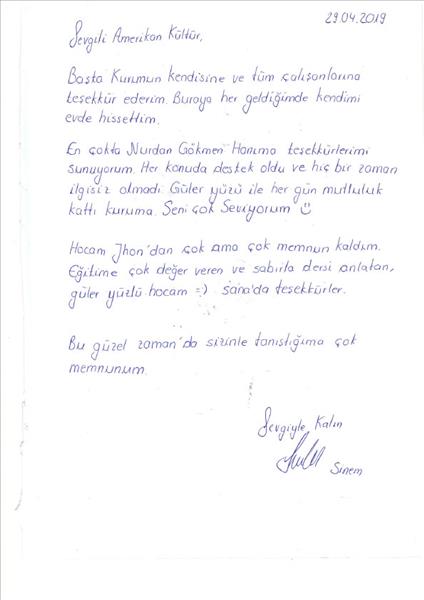 29.04.2019
Sevgili Amerikan Kültür,
Başta Kurumun kendisine ve tüm çalışanlarına
teşekkür ederim. Buraya her geldiğimde kendimi
evde hissettim.
En çokta Nurdan Gökmen Hanıma teşekkürlerimi
sunuyorum. Her konuda destek oldu ve hiç bir zaman
ilgisiz olmadı. Güler yüzü ile her gün mutluluk
kattı kuruma. Seni çok Seviyorum ☺
Hocam Jhon'dan çok ama çok memnun kaldım.
Eğitime çok değer veren ve sabırla dersi anlatan,
güler yüzlü hocam =) sana'da teşekkürler.
Bu güzel zaman'da sizinle tanıştığıma çok
memnunum.
Sevgiyle Kalın
Sinem